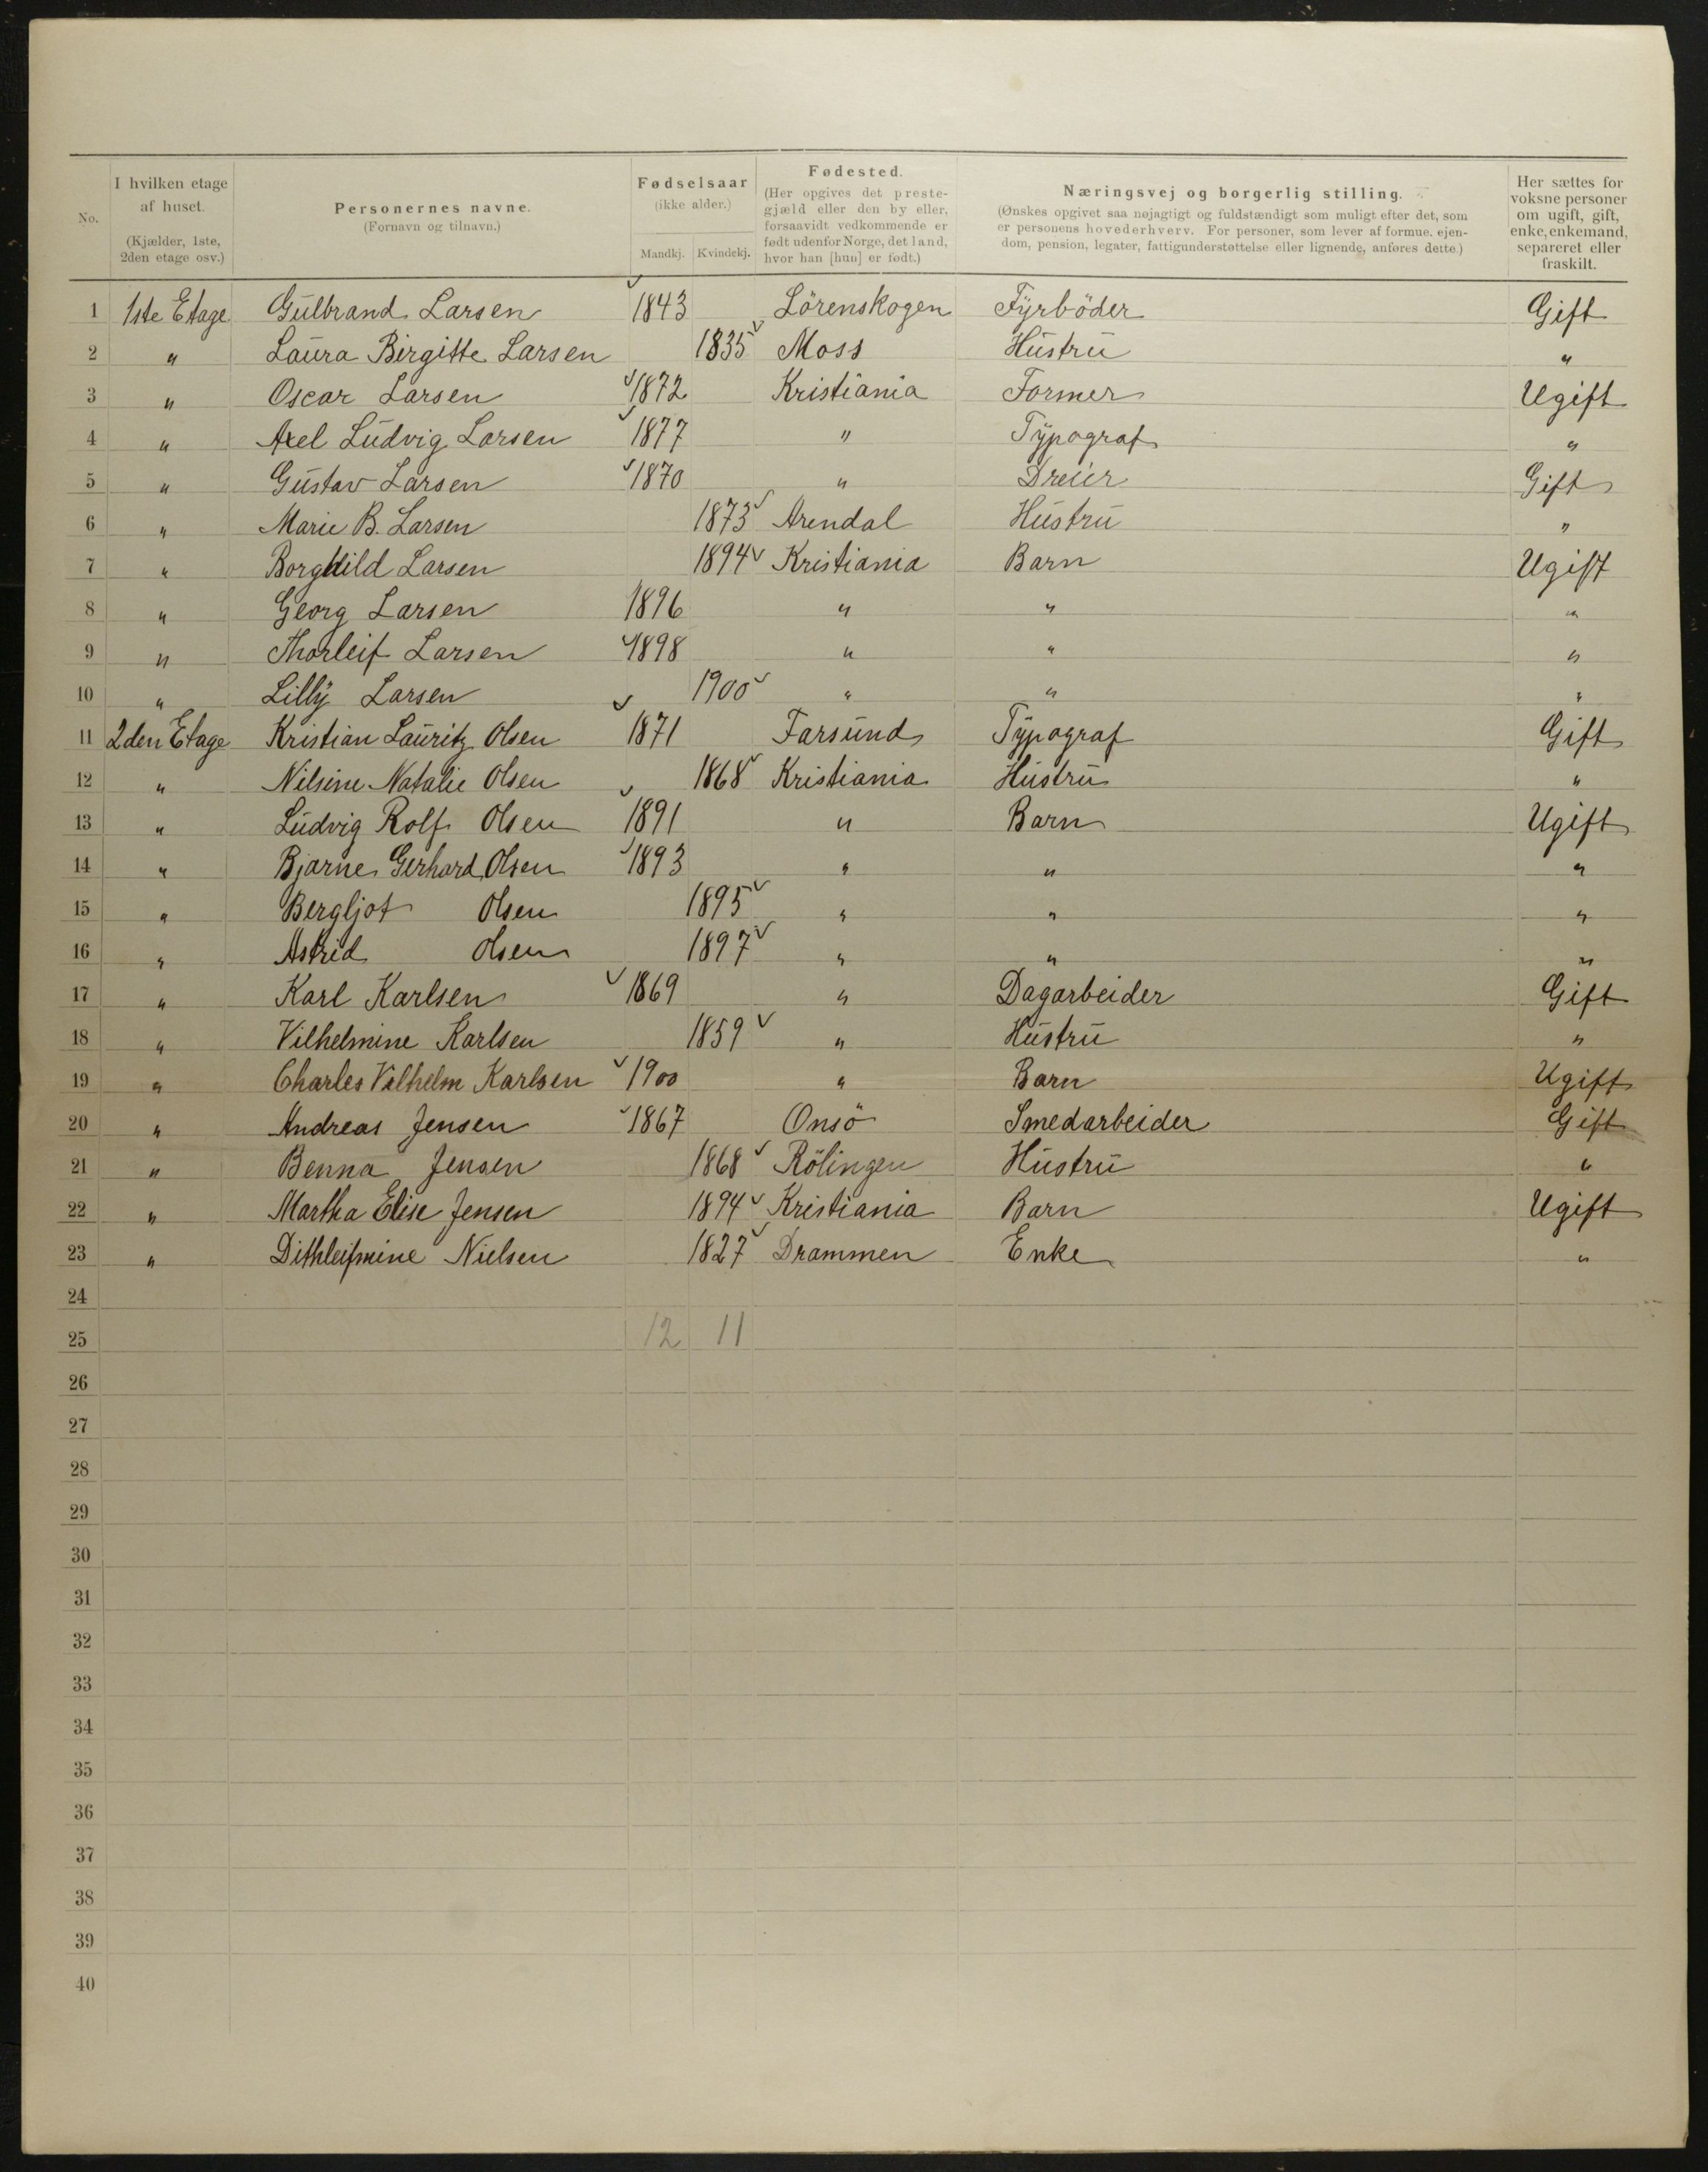 No.
I hvilken etage af huset. (Kjælder, 1ste, 2den etage osv.)
Personernes navne. (Fornavn og tilnavn.)
Fødselsaar (ikke alder.) Mandkj. Kvindekj.
Fødested. (Her opgives det prestegjæld eller den by eller, forsaavidt vedkommende er født udenfor Norge, det land, hvor han [hun] er født.)
Næringsvej og borgerlig stilling. (Ønskes opgivet saa nøjagtigt og fuldstændigt som muligt efter det, som er personens hovederhverv. For personer, som lever af formue, ejendom, pension, legater, fattigunderstøttelse eller lignende, anføres dette.)
Her sættes for voksne personer om ugift, gift, enke, enkemand, separeret eller fraskilt.
1 1ste Etage Gulbrand Larsen 1843 Lörenskogen Fyrböder Gift
2 " Laura Birgitte Larsen 1835 Moss Hustru "
3 " Oscar Larsen 1872 Kristiania Former Ugift
4 " Axel Ludvig Larsen 1877 " Typograf "
5 " Gustav Larsen 1870 " Dreier Gift
6 " Marie B. Larsen 1873 Arendal Hustru "
7 " Borghild Larsen 1894 Kristiania Barn Ugift
8 " Georg Larsen 1896 " " "
9 " Thorleif Larsen 1898 " " "
10 " Lilly Larsen 1900 " " "
11 2den Etage Kristian Lauritz Olsen 1871 Farsund Typograf Gift
12 " Nilsine Natalie Olsen 1868 Kristiania Hustru "
13 " Ludvig Rolf Olsen 1891 " Barn Ugift
14 " Bjarne Gerhard Olsen 1893 " " "
15 " Bergljot Olsen 1895 " " "
16 " Astrid Olsen 1897 " " "
17 " Karl Karlsen 1869 " Dagarbeider Gift
18 " Vilhelmine Karlsen 1859 " Hustru "
19 " Charles Vilhelm Karlsen 1900 " Barn Ugift
20 " Andreas Jensen 1867 Onsö Smedarbeider Gift
21 " Benna Jensen 1868 Rölingen Hustru "
22 " Martha Elise Jensen 1894 Kristiania Barn Ugift
23 " Dithleifmine Nielsen 1827 Drammen Enke "
24
25 12 11
26
27
28
29
30
31
32
33
34
35
36
37
38
39
40